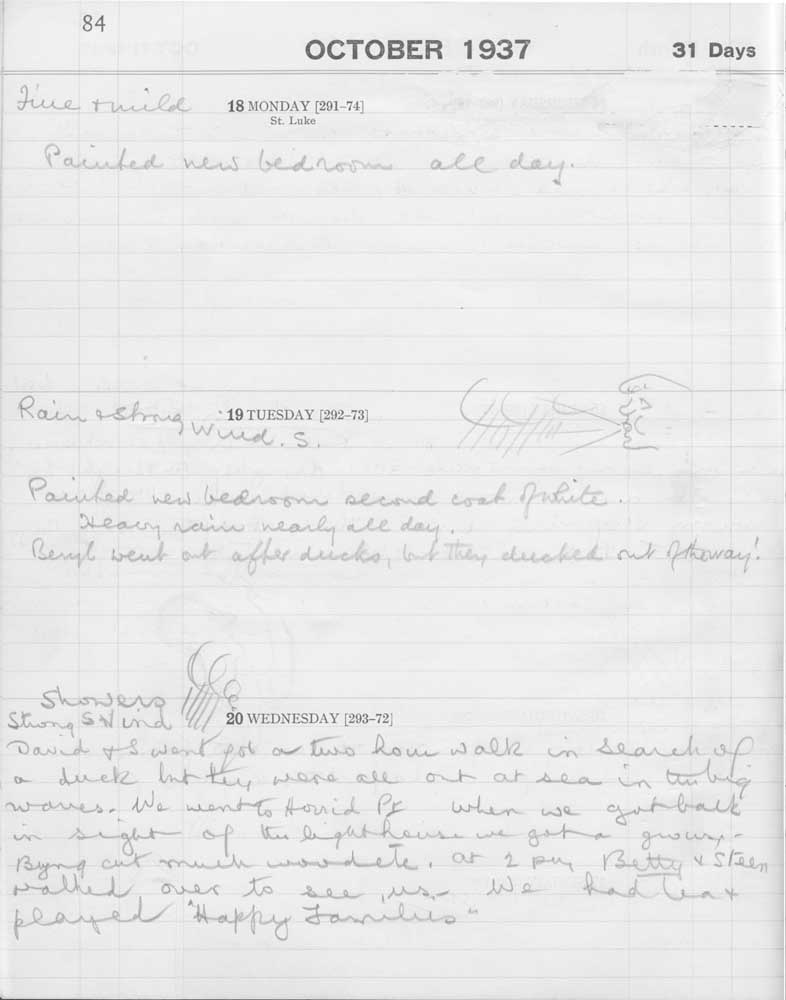 84
OCTOBER 1937 31 Days
Fine + mild 18 MONDAY [291–74]
St. Luke
Painted new bedroom all day.
Rain & strong 19 TUESDAY [292–73]
Wind. S.
Painted new bedroom second coat of white.
Heavy rain nearly all day.
Beryl went out after ducks, but they ducked out of the way!
Showers
Strong S Wind 20 WEDNESDAY [293–72]
David & I went for a two hour walk in search of
a duck but they were all out at sea in the big
waves. We went to Horrid Pt when we got back
in sight of the lighthouse we got a
Byng cut much wood etc. at 2 pm Betty & Steen
walked over to see us. We had tea &
played "Happy Families"